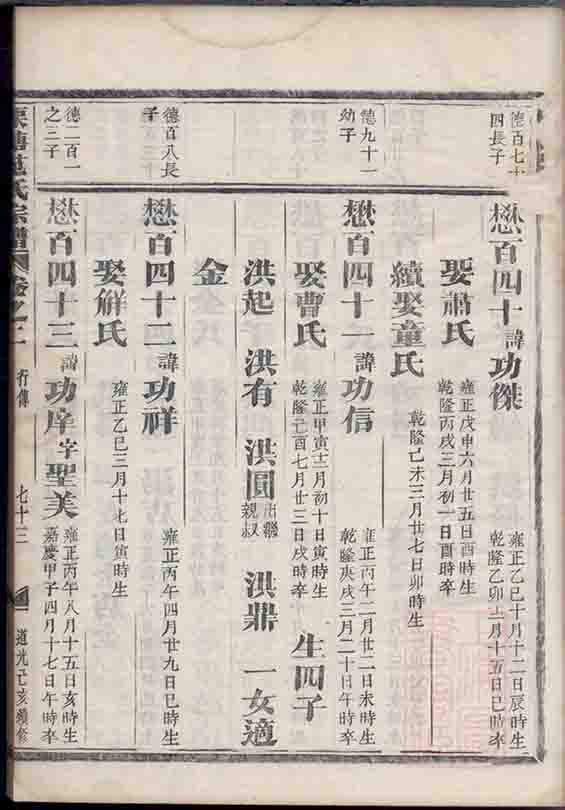 德百七十
四長子
懋百四十諱功傑
雍正乙巳十月十二日辰時生
乾隆乙卯十二月十五日巳時卒
娶蕭氏
雍正戊申六月廿五日酉時生
乾隆丙戌三月初一日酉時卒
續娶童氏
乾隆己未三月廿七日卯時生
德九十一
幼子
懋百四十一諱功信
雍正丙午二月廿二日未時生
乾隆庚戌三月二十日午時卒
娶曹氏
雍正甲寅十二月初十日寅時生
乾隆己酉七月廿三日戌時卒
生四子
洪起 洪有 洪圓
出繼
親叔
洪鼎 一女適
金
德百八長
子
懋百四十二諱功祥
雍正丙午四月廿九日巳時生
娶解氏
雍正乙巳三月十七日寅時生
德二百一
之三子
懋百四十三諱功序字聖美
雍正丙午八月十五日亥時生
嘉慶甲子四月十七日午時卒
范氏宗譜 卷之二 行傳 七十三 道光己亥續修